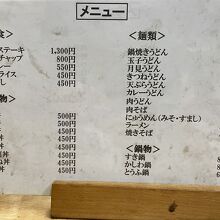 メニュー
食＞
ステーキ 1,300円
チャップ 800円
レー 550円
ライス 450円
し 450円
物＞
丼 500円
丼 500円
450円
丼 450円
丼 450円
丼 450円
＜麺類＞
鍋焼きうどん
玉子うどん
月見うどん
きつねうどん
天ぷらうどん
カレーうどん
肉うどん
肉そば
にゅうめん（みそ・すまし）
ラーメン
焼きそば
＜鍋物＞
すき鍋
かしわ鍋
とうふ鍋